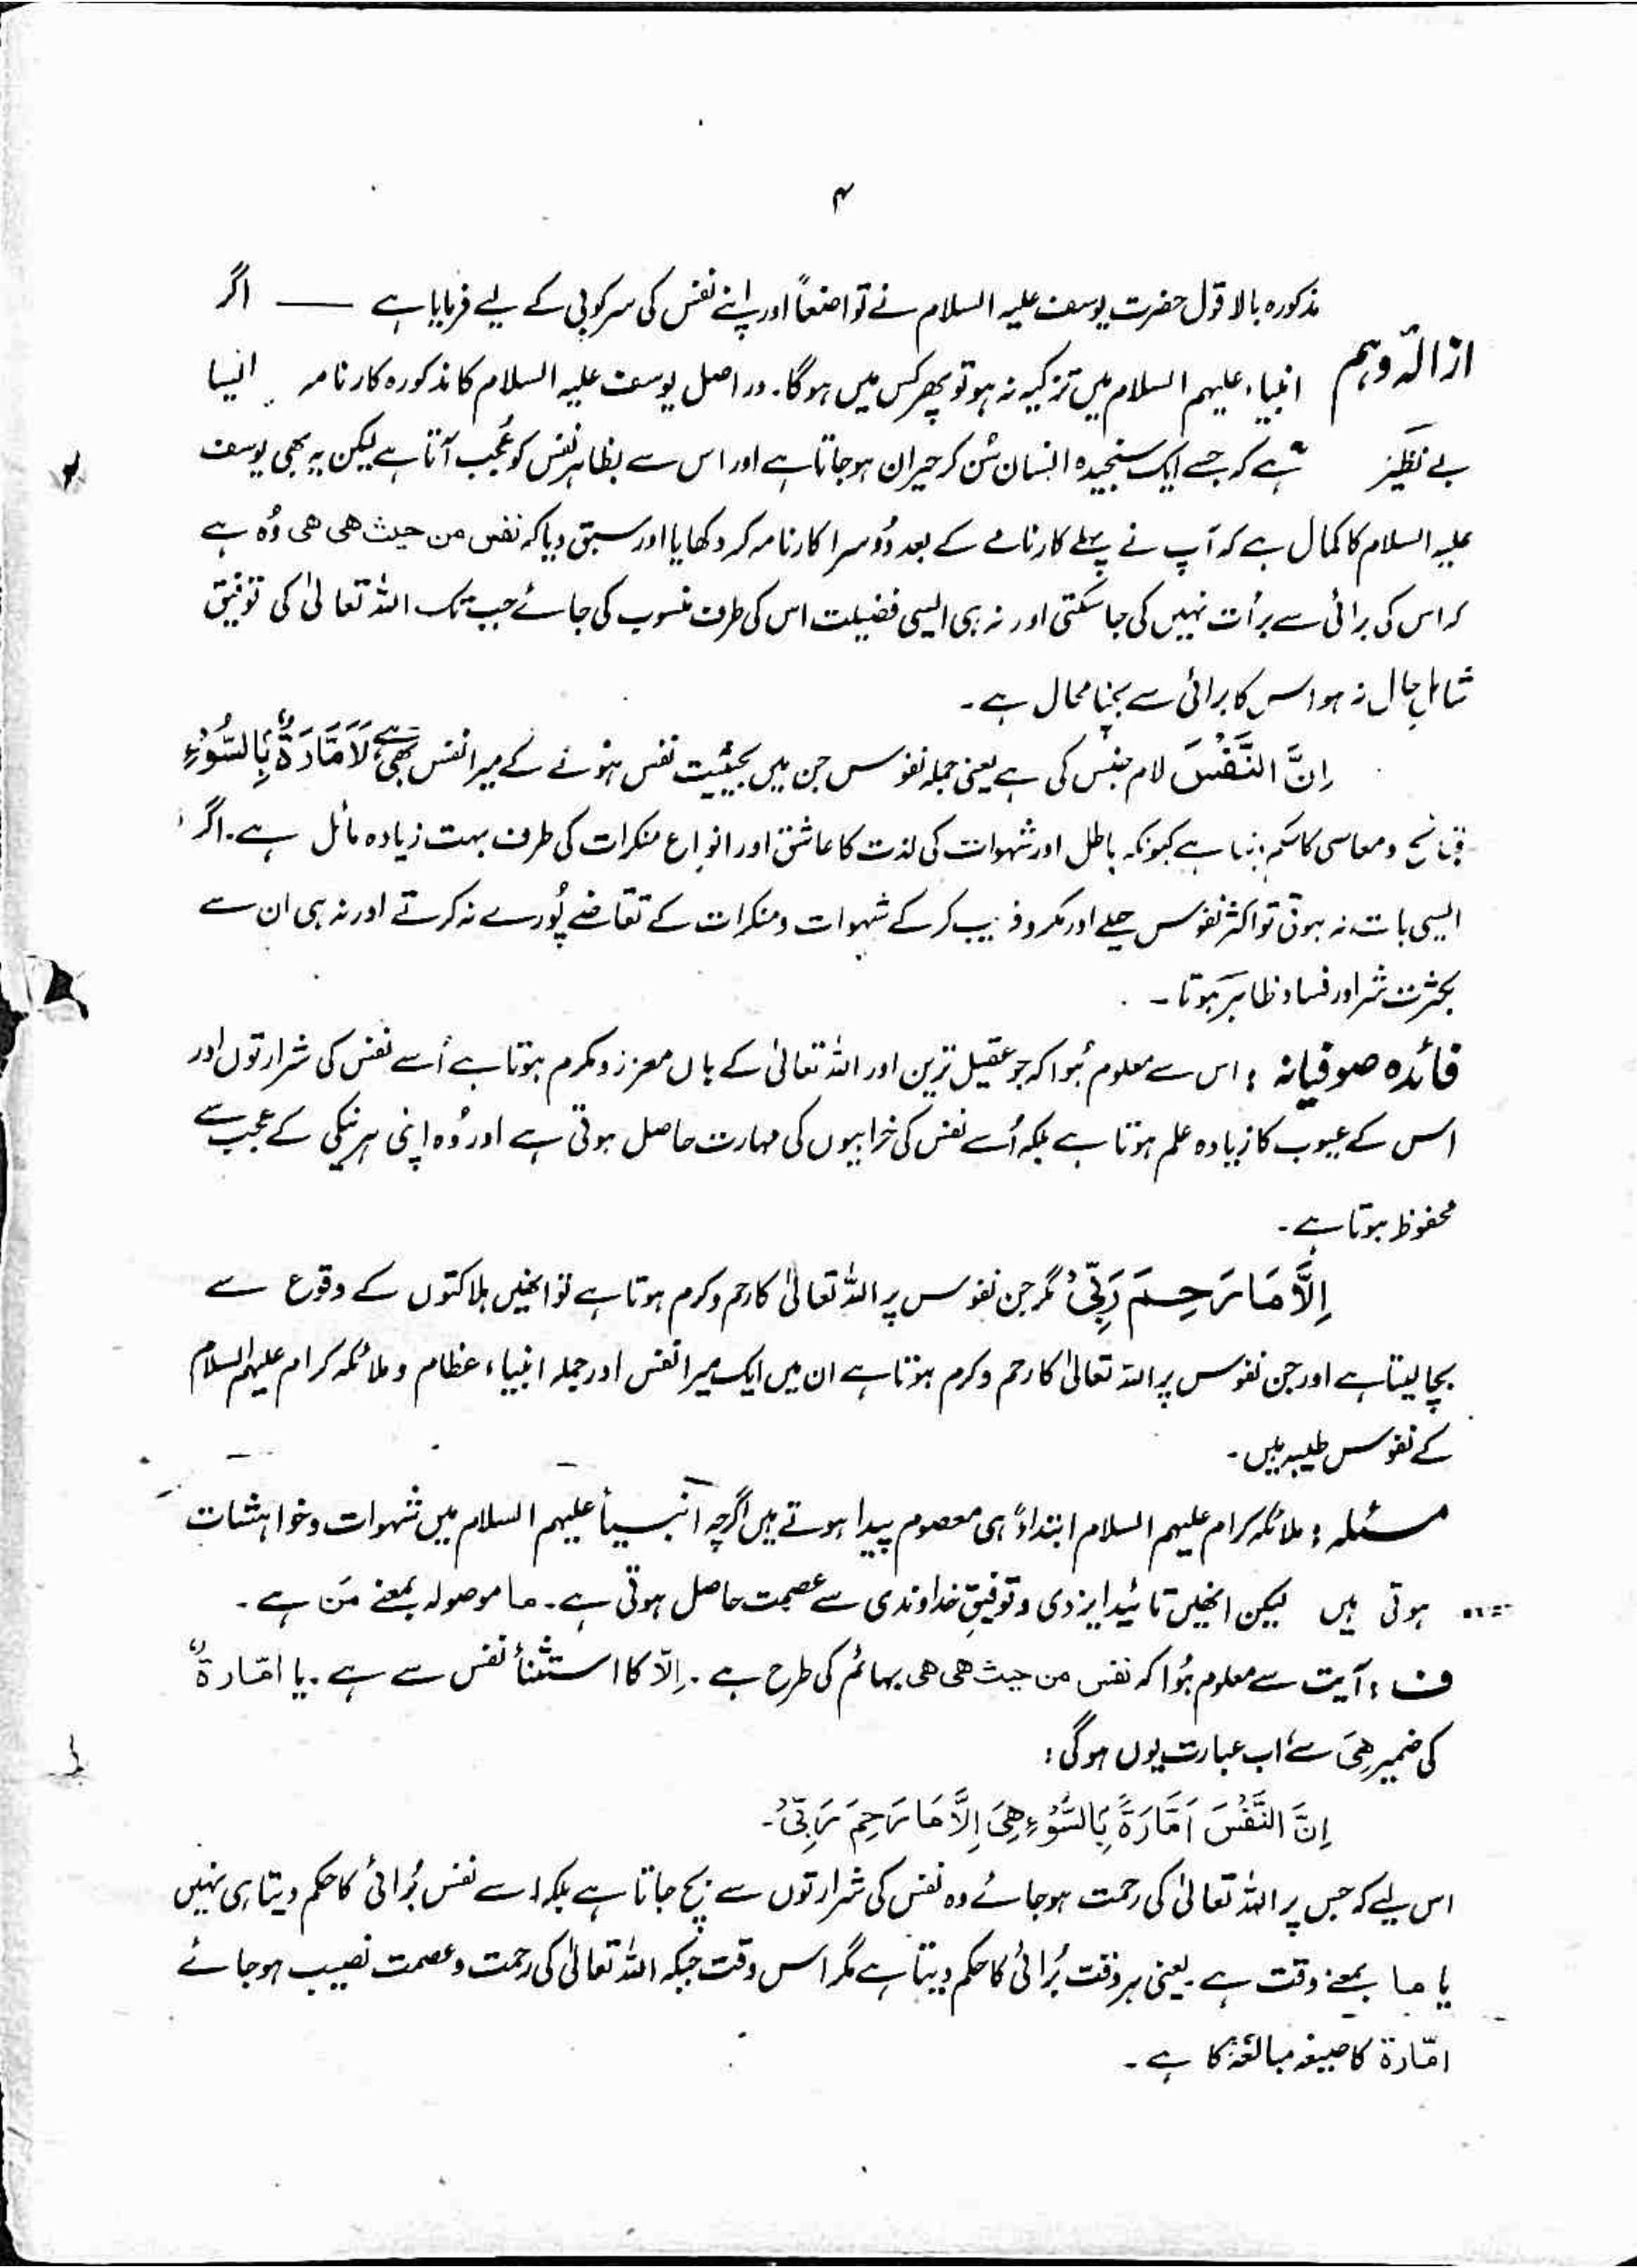 ۴
مذکورہ بالا قول حضرت یوسف علیہ السلام نے تواضعاً اور اپنے نفس کی سرکوبی کے لیے فرمایا ہے —— اگر
ازالۂ وہم انبیاء علیہم السلام میں تزکیہ نہ ہو تو پھر کس میں ہوگا۔ دراصل یوسف علیہ السلام کا مذکورہ کارنامہ ایسا
بے نظیر ہے کہ جسے ایک سنجیدہ انسان سُن کر حیران ہوجاتا ہے اور اس سے بظاہر نفس کو عُجب آتا ہے لیکن یہ بھی یوسف
علیہ السلام کا کمال ہے کہ آپ نے پہلے کارنامے کے بعد دُوسرا کارنامہ کر دکھایا اور سبق دیا کہ نفس من حیث ھی ھی وُہ ہے
کہ اس کی برائی سے برأت نہیں کی جاسکتی اور نہ ہی ایسی فضیلت اس کی طرف منسوب کی جائے جب تک اللہ تعالیٰ کی توفیق
شاملِ حال نہ ہو اس کا برائی سے بچنا محال ہے۔
اِنَّ النَّفْسَ لام جنس کی ہے یعنی جملہ نفوس جن میں بحیثیت نفس ہونے کے میرا نفس بھی ہے لَاَمَّارَةٌۢ بِالسُّوْٓءِ
قبائح و معاصی کا حکم دیتا ہے کیونکہ باطل اور شہوات کی لذت کا عاشق اور انواع منکرات کی طرف بہت زیادہ مائل ہے۔ اگر
ایسی بات نہ ہوتی تو اکثر نفوس حیلے اور مکر و فریب کرکے شہوات و منکرات کے تقاضے پُورے نہ کرتے اور نہ ہی ان سے
بکثرت شر اور فساد ظاہر ہوتا۔
فائدہ صوفیانہ : اس سے معلوم ہُوا کہ جو عقیل ترین اور اللہ تعالیٰ کے ہاں معزز و مکرم ہوتا ہے اُسے نفس کی شرارتوں اور
اس کے عیوب کا زیادہ علم ہوتا ہے بلکہ اُسے نفس کی خرابیوں کی مہارت حاصل ہوتی ہے اور وُہ اپنی ہر نیکی کے عجب سے
محفوظ ہوتا ہے۔
اِلَّا مَا رَحِمَ رَبِّیْ ؕ مگر جن نفوس پر اللہ تعالیٰ کا رحم و کرم ہوتا ہے تو انھیں ہلاکتوں کے وقوع سے
بچا لیتا ہے اور جن نفوس پر اللہ تعالیٰ کا رحم و کرم ہوتا ہے ان میں ایک میرا نفس اور جملہ انبیاء عظام و ملائکہ کرام علیہم السلام
کے نفوس طیبہ ہیں۔
مسئلہ : ملائکہ کرام علیہم السلام ابتداءً ہی معصوم پیدا ہوتے ہیں اگرچہ انبیأ علیہم السلام میں شہوات و خواہشات
ہوتی ہیں لیکن انھیں تائیدِ ایزدی و توفیقِ خداوندی سے عصمت حاصل ہوتی ہے۔ ما موصولہ بمعنے مَن ہے۔
ف : آیت سے معلوم ہُوا کہ نفس من حیث ھی ھی بہائم کی طرح ہے۔ اِلّا کا استثنأ نفس سے ہے۔ یا امّارةٌۢ
کی ضمیر ھِیَ سے اب عبارت یوں ہوگی :
اِنَّ النَّفْسَ اَمَّارَةٌ بِالسُّوْٓءِ هِیَ اِلَّا مَا رَحِمَ رَبِّیْ۔
اس لیے کہ جس پر اللہ تعالیٰ کی رحمت ہوجائے وہ نفس کی شرارتوں سے بچ جاتا ہے بلکہ اسے نفس بُرائی کا حکم دیتا ہی نہیں
یا ما بمعنے وقت ہے یعنی ہر وقت بُرائی کا حکم دیتا ہے مگر اس وقت جبکہ اللہ تعالیٰ کی رحمت و عصمت نصیب ہوجائے
امّارة کا صیغہ مبالغہ کا ہے۔